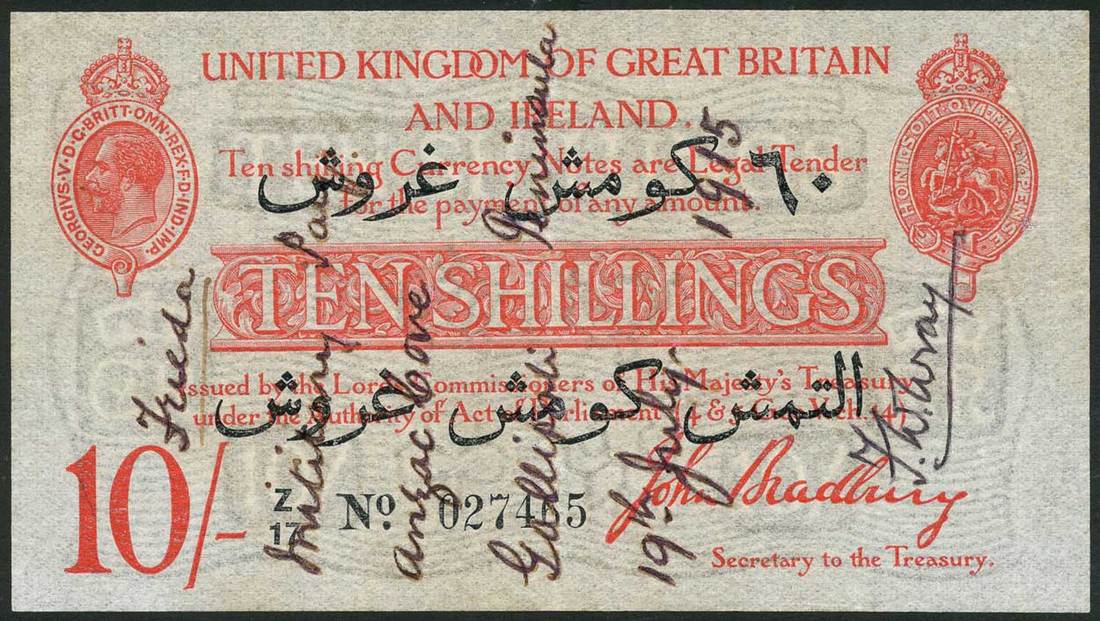 UNITED KINGDOM OF GREAT BRITAIN
AND IRELAND.
Ten shilling Currency Notes are Legal Tender
for the payment of any amount.
٦٠ كومش غروش
TEN SHILLINGS
Issued by the Lords Commissioners of His Majesty's Treasury
under the Authority of Act of Parliament (4 & 5 Geo. V. Ch. 14)
التمش كومش غروش
10/-
Z
17
No. 027465
John Bradbury
Secretary to the Treasury.
GEORGIVS·V·D·G·BRITT·OMN·REX·F·D·IND·IMP.
HONI·SOIT·QVI·MAL·Y·PENSE
Frieda
Military
Anzac Cove
Gallipoli Peninsula
19th July. 1915